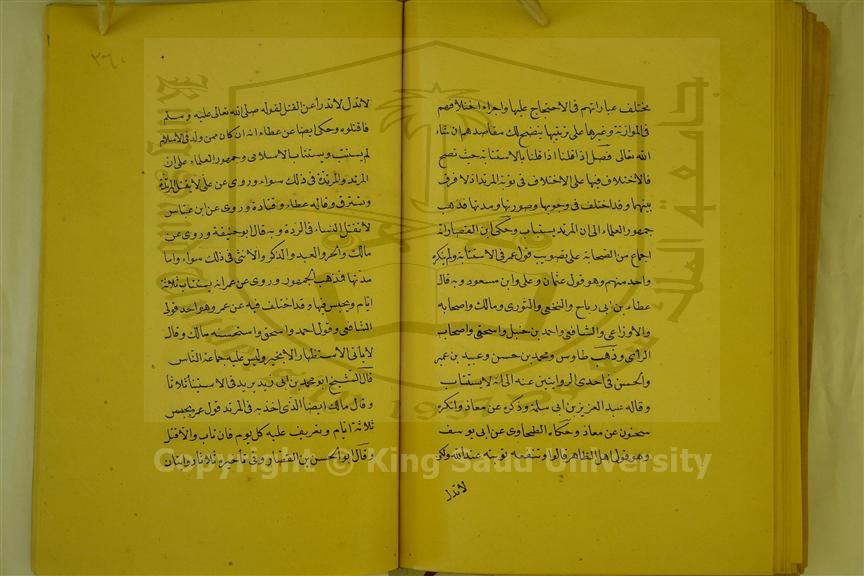 مختلف عباراتهم في الاحتجاج عليها واجراء اختلافهم
في الموازنة وغيرها على ترتيبها يتضح لك مقاصدهم ان شاء
الله تعالى فصل اذا قلنا بالاستتابة حيث تصح
فالاختلاف فيها على الاختلاف في توبة المرتد اذ لا فرق
بينهما وقد اختلف في وجوبها وصورتها ومدتها فذهب
جمهور العلماء الى ان المرتد يستتاب وحكى ابن القصار انه
اجماع من الصحابة على تصويب قول عمر في الاستتابة ولم ينكره
واحد منهم وهو قول عثمان وعلى وابن مسعود وبه قال
عطاء بن ابى رباح والنخعى والثورى ومالك واصحابه
والاوزاعى والشافعى واحمد بن حنبل واسحق واصحاب
الراى وذهب طاوس ومحمد بن حسن وعبيد بن عمير
والحسن في احدى الروايتين عنه الى انه لا يستتاب
وقاله عبد العزيز بن ابى سلمة وذكره عن معاذ وانكره
سحنون عن معاذ وحكاه الطحاوى عن ابى يوسف
وهو قول اهل الظاهر قالوا وتنفعه توبته عند الله ولكن
لا تدرأ
لا تدرأ القتل عنه لقوله صلى الله تعالى عليه وسلم
فاقتلوه وحكى ايضا عن عطاء انه ان كان ممن ولد في الاسلام
لم يستتب ويستتاب الاسلامى وجمهور العلماء على ان
المرتد والمرتدة في ذلك سواء وروى عن على لا يقتل المرتدة
وتسترق وقاله عطاء وقتادة وروى عن ابن عباس
لا تقتل النساء في الردة وبه قال ابو حنيفة وروى عن
مالك والحر والعبد والذكر والانثى في ذلك سواء واما
مدتها فمذهب الجمهور وروى عن عمر انه يستتاب ثلاثة
ايام ويحبس فيها وقد اختلف فيه عن عمر وهو احد قولى
الشافعى وقول احمد واسحق واستحسنه مالك وقال
لا ياتى الاستظهار الا بخير وليس عليه جماعة الناس
قال الشيخ ابو محمد بن ابى زيد يريد في الاستيناء ثلاثا
وقال مالك ايضا الذى اخذ به في المرتد قول عمر يحبس
ثلاثة ايام ويعرض عليه كل يوم فان تاب والا قتل
وقال ابو الحسن بن القصار وفى تاخيره ثلاثا روايتان
Copyright © King Saud University